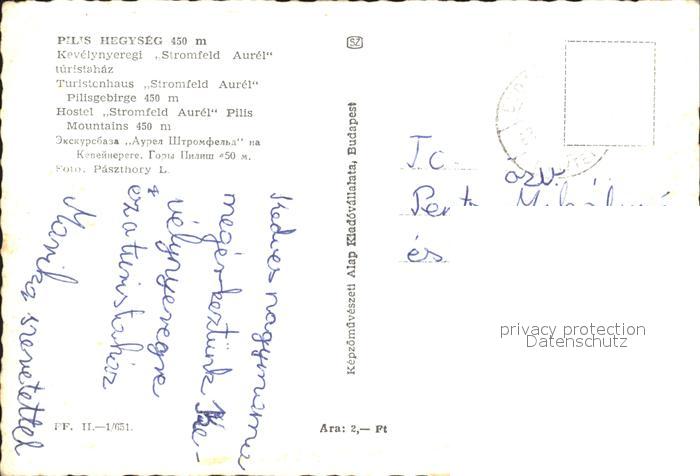 PILIS HEGYSÉG 450 m
Kevélynyeregi „Stromfeld Aurél“
túristaház
Turistenhaus „Stromfeld Aurél“
Pilisgebirge 450 m
Hostel „Stromfeld Aurél“ Pilis
Mountains 450 m
Экскурсбаза „Аурел Штромфельд“ на
Кевейнереге. Горы Пилиш 450 м.
Foto: Pászthory L.
Kedves nagymama
megérkeztünk Ke-
vélynyeregre
s ez a turistaház
Marika szeretettel
FF. II.—1/651.
SZ
Képzőművészeti Alap Kiadóvállalata, Budapest
Ára: 2,— Ft
özv
és
privacy protection
Datenschutz